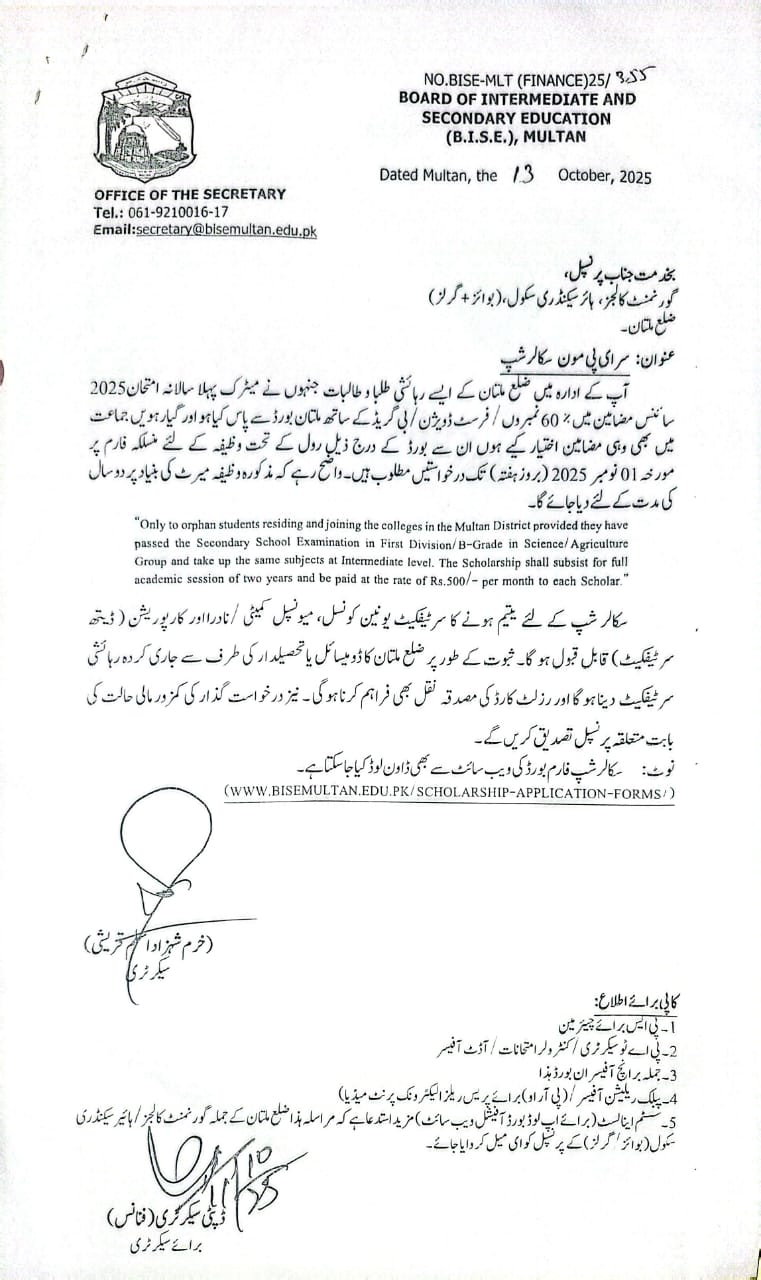 NO.BISE-MLT (FINANCE)25/355
BOARD OF INTERMEDIATE AND
SECONDARY EDUCATION
(B.I.S.E.), MULTAN
Dated Multan, the 13 October, 2025
OFFICE OF THE SECRETARY
Tel.: 061-9210016-17
Email:secretary@bisemultan.edu.pk
بخدمت جناب پرنسپل،
گورنمنٹ کالجز، ہائر سیکنڈری سکول، (بوائز + گرلز)
ضلع ملتان۔
عنوان: سر ای پی مون سکالرشپ
آپ کے ادارہ میں ضلع ملتان کے ایسے رہائشی طلبا و طالبات جنہوں نے میٹرک پہلا سالانہ امتحان 2025
سائنس مضامین میں 60% نمبروں / فرسٹ ڈویژن / بی گریڈ کے ساتھ ملتان بورڈ سے پاس کیا ہو اور گیارہویں جماعت
میں بھی وہی مضامین اختیار کیے ہوں ان سے بورڈ کے درج ذیل رول کے تحت وظیفہ کے لئے منسلکہ فارم پر
مورخہ 01 نومبر 2025 (بروز ہفتہ) تک درخواستیں مطلوب ہیں۔ واضح رہے کہ مذکورہ وظیفہ میرٹ کی بنیاد پر دو سال
کی مدت کے لئے دیا جائے گا۔
"Only to orphan students residing and joining the colleges in the Multan District provided they have
passed the Secondary School Examination in First Division/B-Grade in Science/Agriculture
Group and take up the same subjects at Intermediate level. The Scholarship shall subsist for full
academic session of two years and be paid at the rate of Rs.500/- per month to each Scholar."
سکالر شپ کے لئے یتیم ہونے کا سرٹیفکیٹ یونین کونسل، میونسپل کمیٹی / نادرا اور کارپوریشن (ڈیتھ
سرٹیفکیٹ) قابل قبول ہو گا۔ ثبوت کے طور پر ضلع ملتان کا ڈومیسائل یا تحصیلدار کی طرف سے جاری کردہ رہائشی
سرٹیفکیٹ دینا ہو گا اور رزلٹ کارڈ کی مصدقہ نقل بھی فراہم کرنا ہو گی۔ نیز درخواست گذار کی کمزور مالی حالت کی
بابت متعلقہ پرنسپل تصدیق کریں گے۔
نوٹ: سکالر شپ فارم بورڈ کی ویب سائٹ سے بھی ڈاون لوڈ کیا جا سکتا ہے۔
(WWW.BISEMULTAN.EDU.PK/SCHOLARSHIP-APPLICATION-FORMS/)
(خرم شہزاد قریشی)
سیکرٹری
کاپی برائے اطلاع:
1۔ پی ایس برائے چیئرمین
2۔ پی اے ٹو سیکرٹری / کنٹرولر امتحانات / آڈٹ آفیسر
3۔ جملہ برانچ آفیسران بورڈ ہذا
4۔ پبلک ریلیشن آفیسر / (پی آر او) برائے پریس ریلیز الیکٹرونک پرنٹ میڈیا)
5۔ سسٹم اینالسٹ (برائے اپ لوڈ بورڈ آفیشل ویب سائٹ) مزید استدعا ہے کہ مراسلہ ہذا ضلع ملتان کے جملہ گورنمنٹ کالجز / ہائیر سیکنڈری
سکول (بوائز / گرلز) کے پرنسپل کو ای میل کر دیا جائے۔
ڈپٹی سیکرٹری (فنانس)
برائے سیکرٹری